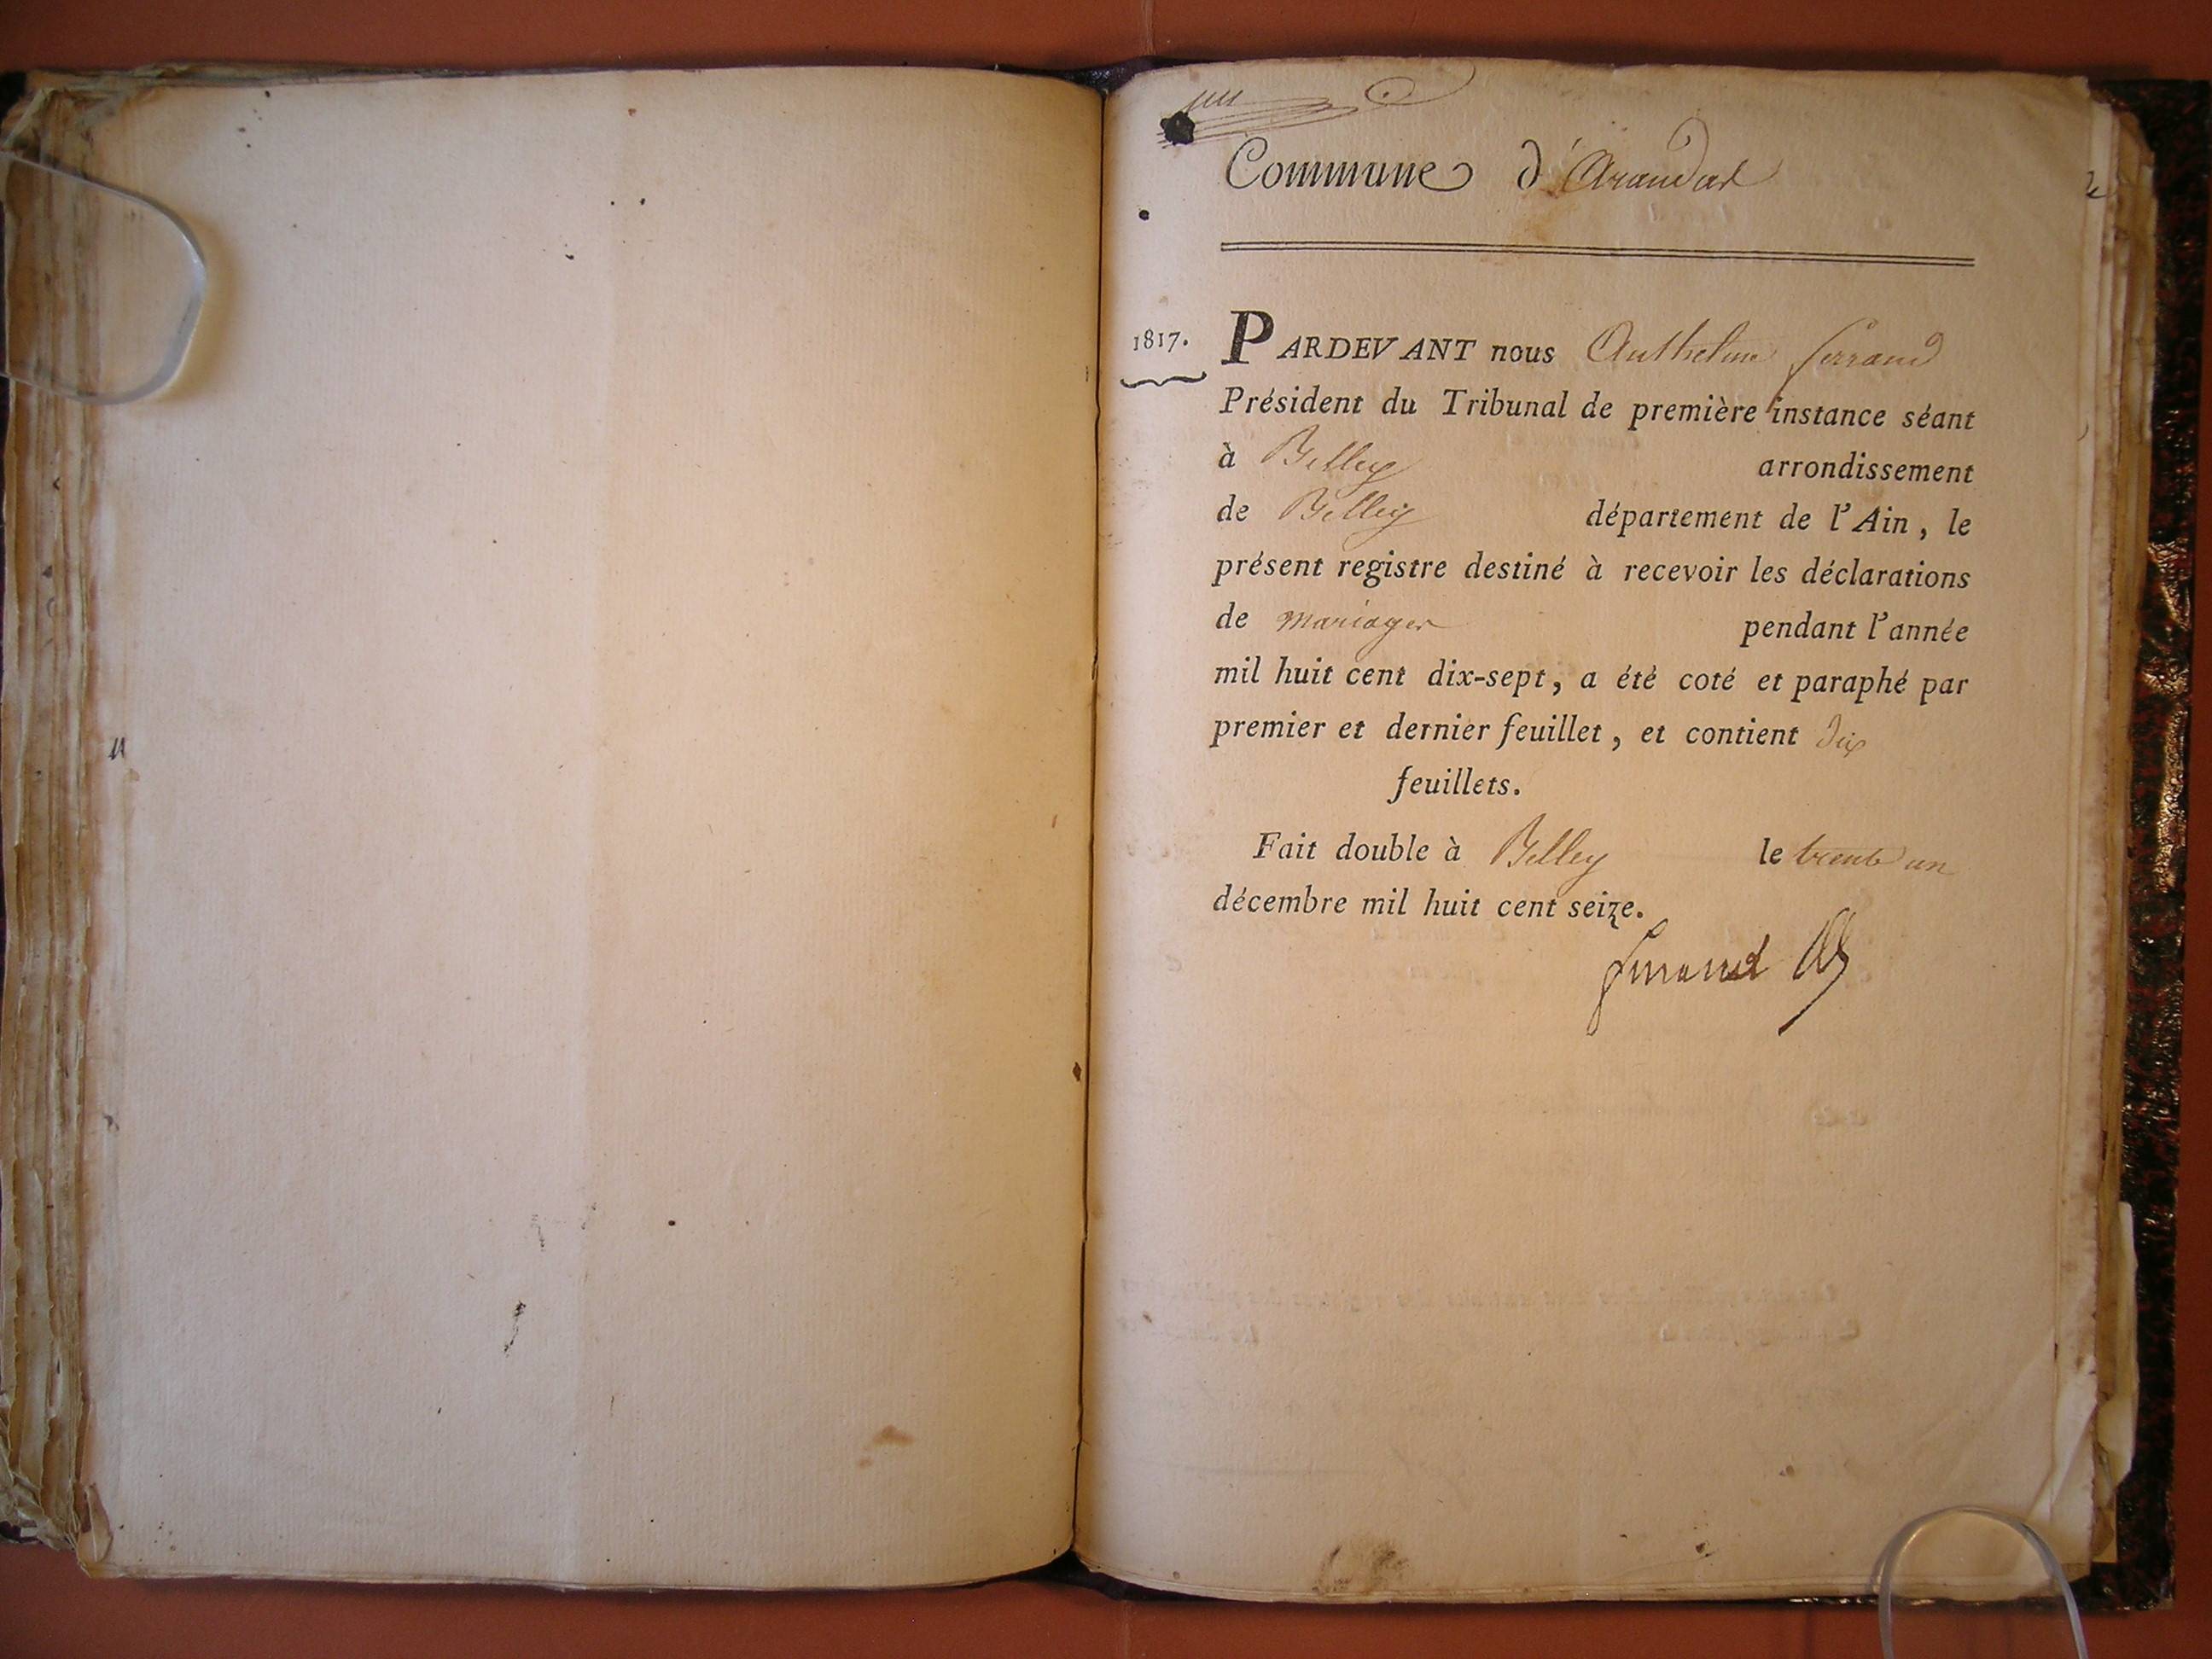 Commune d'Arandas
1817.
PARDEVANT nous Anthelme ferrand
Président du Tribunal de première instance séant
à Belley arrondissement
de Belley département de l'Ain, le
présent registre destiné à recevoir les déclarations
de mariages pendant l'année
mil huit cent dix-sept, a été coté et paraphé par
premier et dernier feuillet, et contient dix
feuillets.
Fait double à Belley le trente un
décembre mil huit cent seize.
ferrand